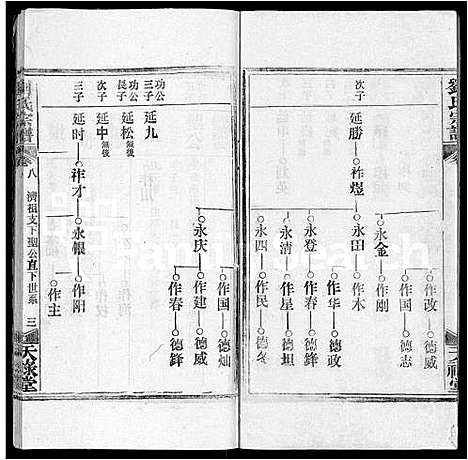 劉氏宗譜
次子
延勝
祚煜
永金
作改
德威
作國
德志
作削
永田
作木
永登
作华
德政
永清
作星
德坦
永四
作民
德冬
永庆
作国
德灿
作建
德威
作春
德鋒
功公
三子
延九
功公
長子
延松
無後
次子
延中
無後
三子
延时
祚才
永银
作阳
作主
劉氏宗譜
卷八
濟祖支下聖公直下世系
三
天禄堂